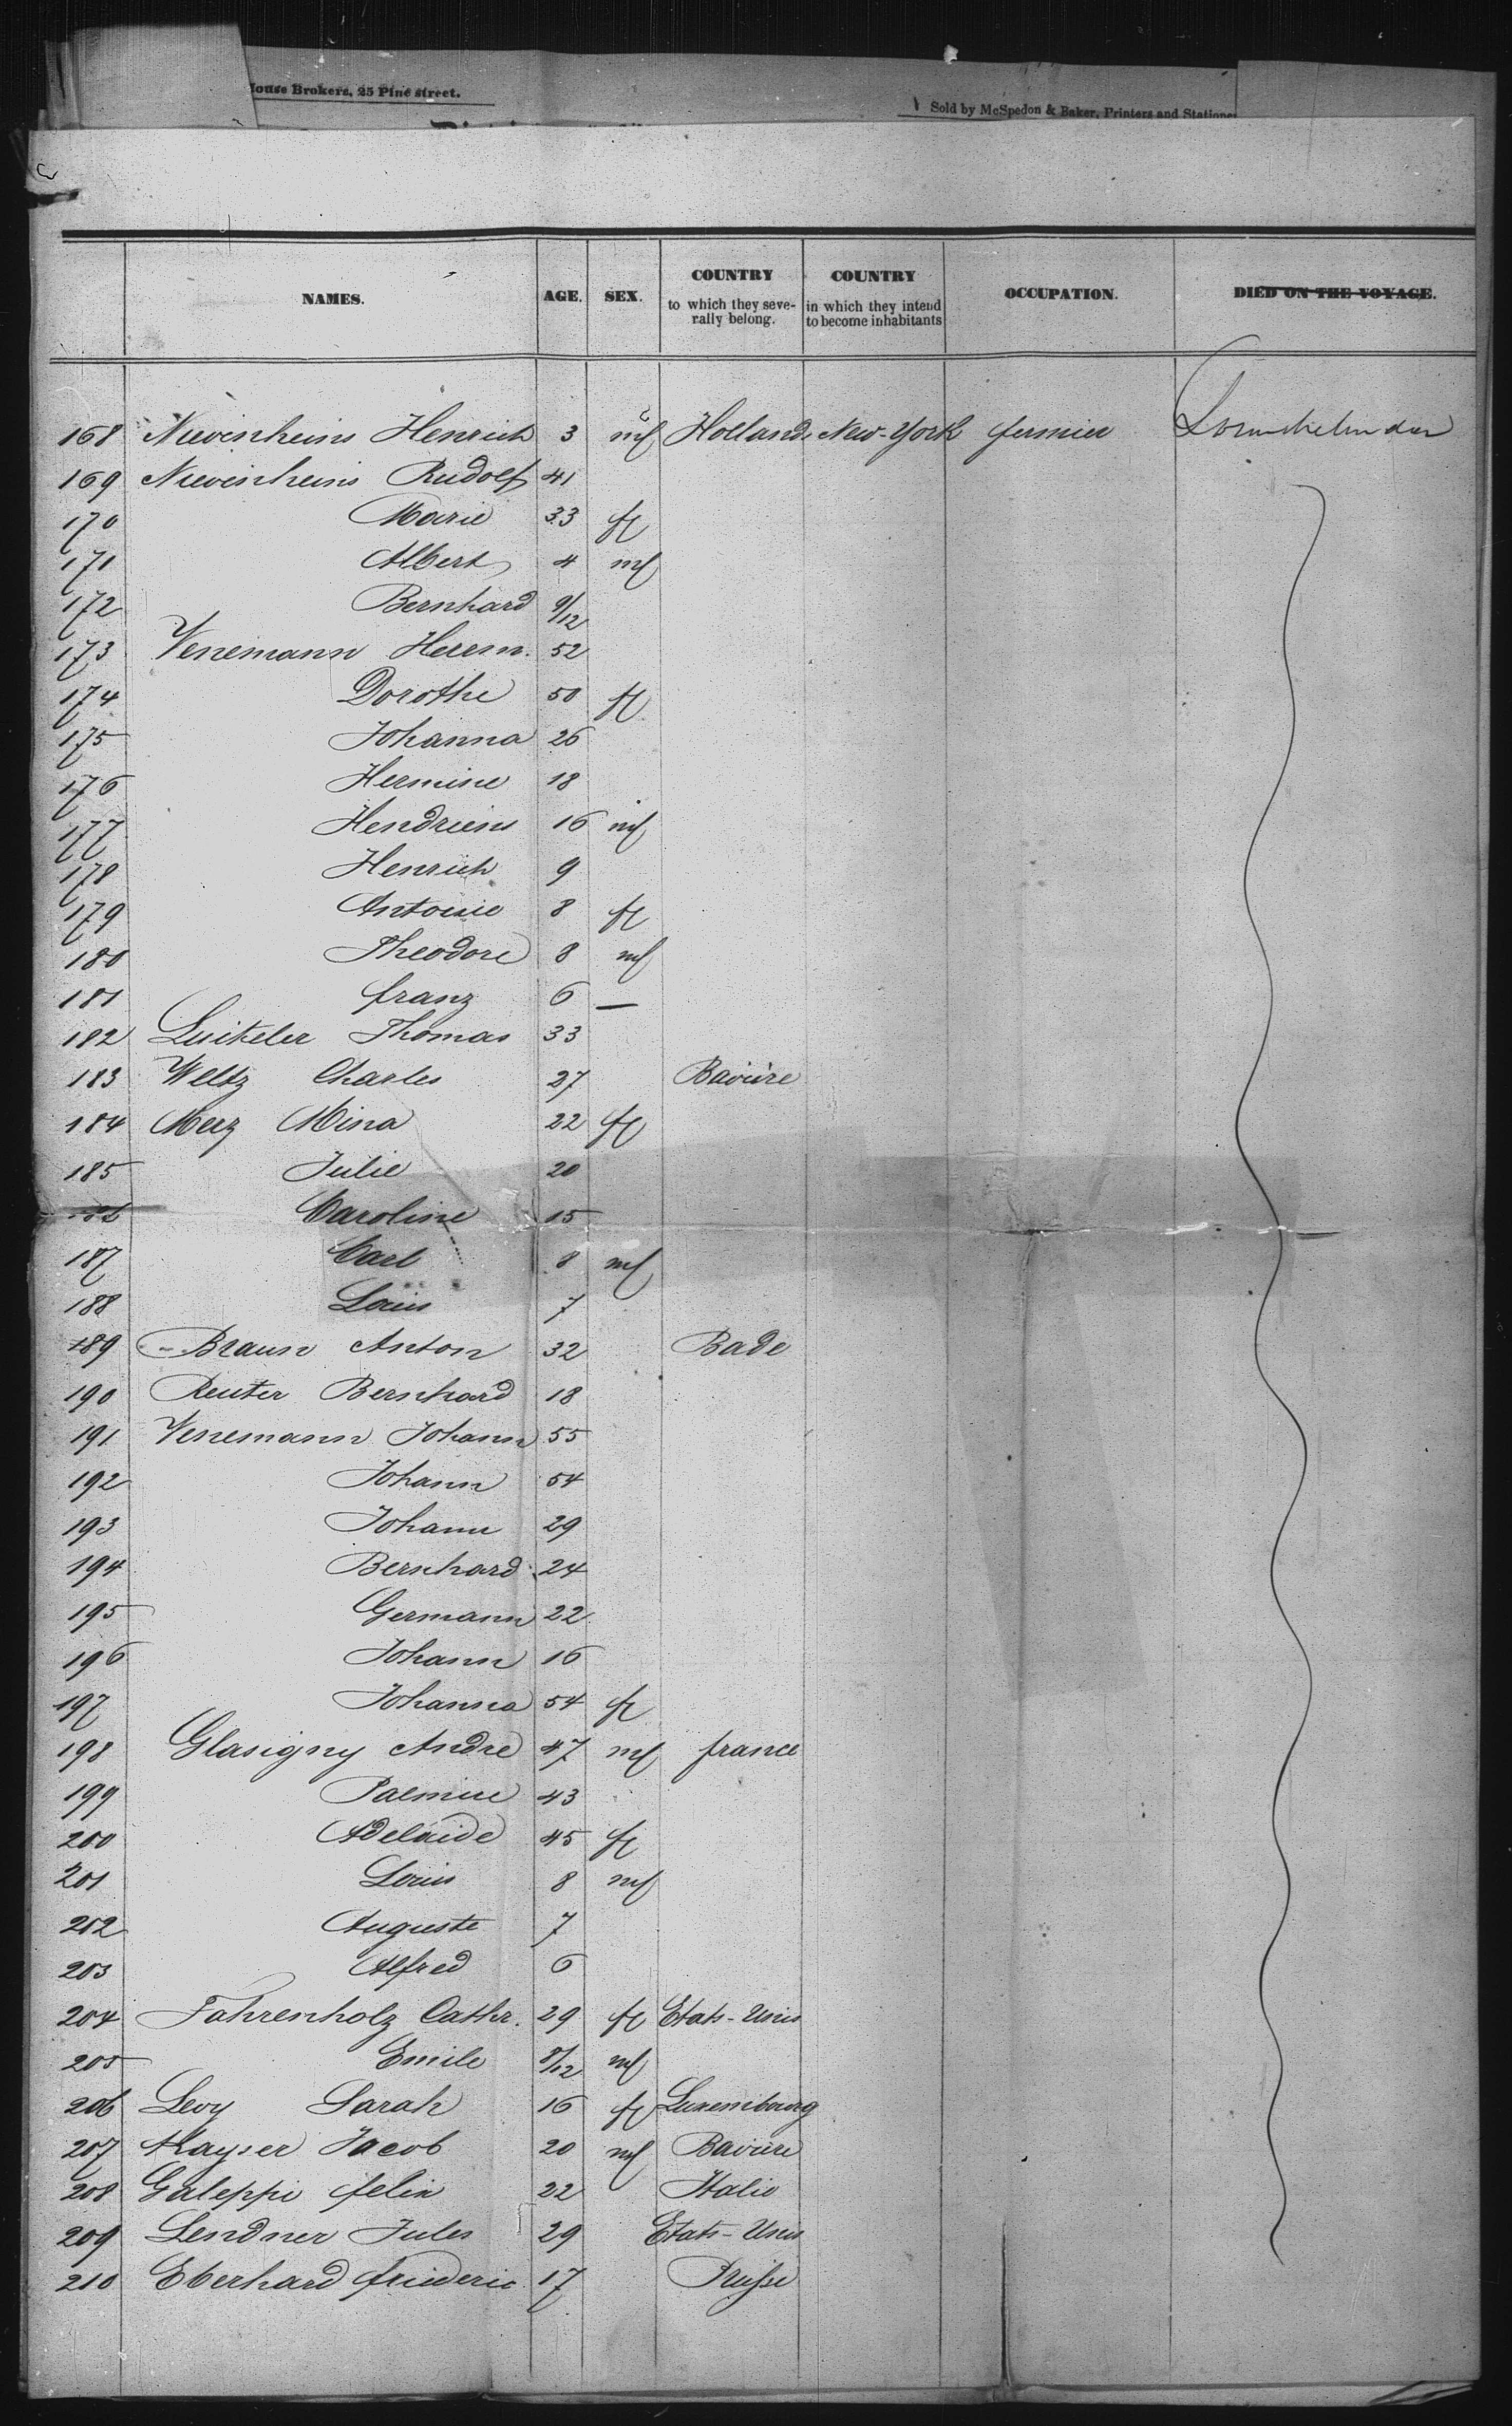 House Brokers, 25 Pine street.
Sold by McSpedon & Baker, Printers and Statione
NAMES. AGE. SEX. COUNTRY to which they seve-rally belong. COUNTRY in which they intend to become inhabitants OCCUPATION. DIED ON THE VOYAGE.
168 Nievenheins Henrich 3 m Hollande New-York fermier
169 Nievenheins Rudolf 41
170 Marie 33 f
171 Albert 4 m
172 Bernhard 9/12
173 Venemann Herrm. 52
174 Dorothe 50 f
175 Johanna 26
176 Hermine 18
177 16 m
178 Henrich 9
179 Antoine 8 f
180 Theodore 8 m
181 franz 6 —
182 Luikeler Thomas 33
183 Weltz Charles 27 Bavière
184 Merz Mina 22 f
185 Julie 20
186 Caroline 15
187 Carl 8 m
188 Louis 7
189 Braun Anton 32 Bade
190 Reuter Bernhard 18
191 Venemann Johann 55
192 Johann 54
193 Johann 29
194 Bernhard 24
195 Germann 22
196 Johann 16
197 Johanna 54 f
198 Glasigny Andre 47 m france
199 43
200 Adelaide 45 f
201 Louis 8 m
202 Auguste 7
203 Alfred 6
204 Fahrenholz Cathr. 29 f Etats-Unis
205 Emile 8/12 m
206 Levy Sarah 16 f Luxembourg
207 Kayser Jacob 20 m Baviere
208 Galeppi felix 22 Italie
209 Lendner Jules 29 Etats-Unis
210 Eberhard friederic 17 Prusse